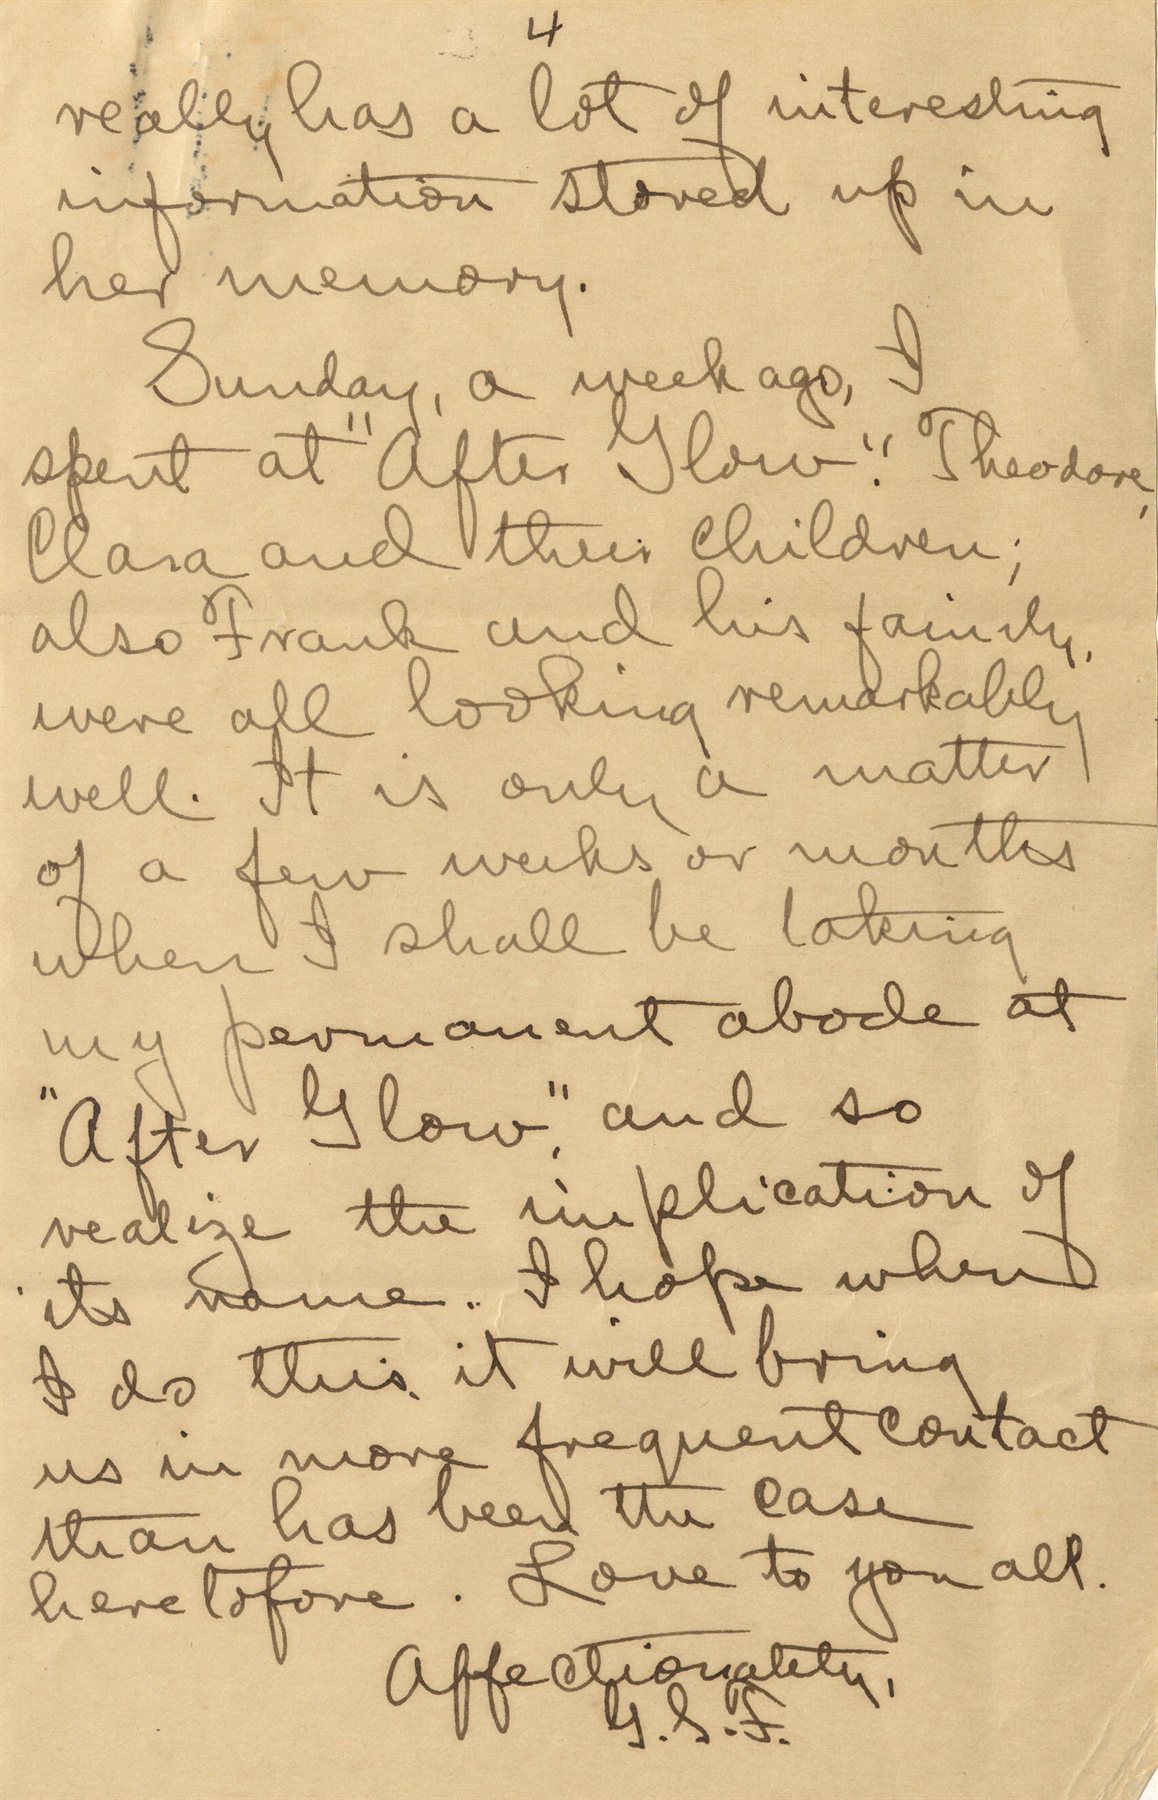 4
really has a lot of interesting
information stored up in
her memory.
Sunday, a week ago, I
spent at "After Glow". Theodore,
Clara and their children;
also Frank and his family,
were all looking remarkably
well. It is only a matter
of a few weeks or months
when I shall be taking
my permanent abode at
"After Glow", and so
realize the implication of
its name. I hope when
I do this it will bring
us in more frequent contact
than has been the case
heretofore. Love to you all.
Affectionately,
G.S.F.